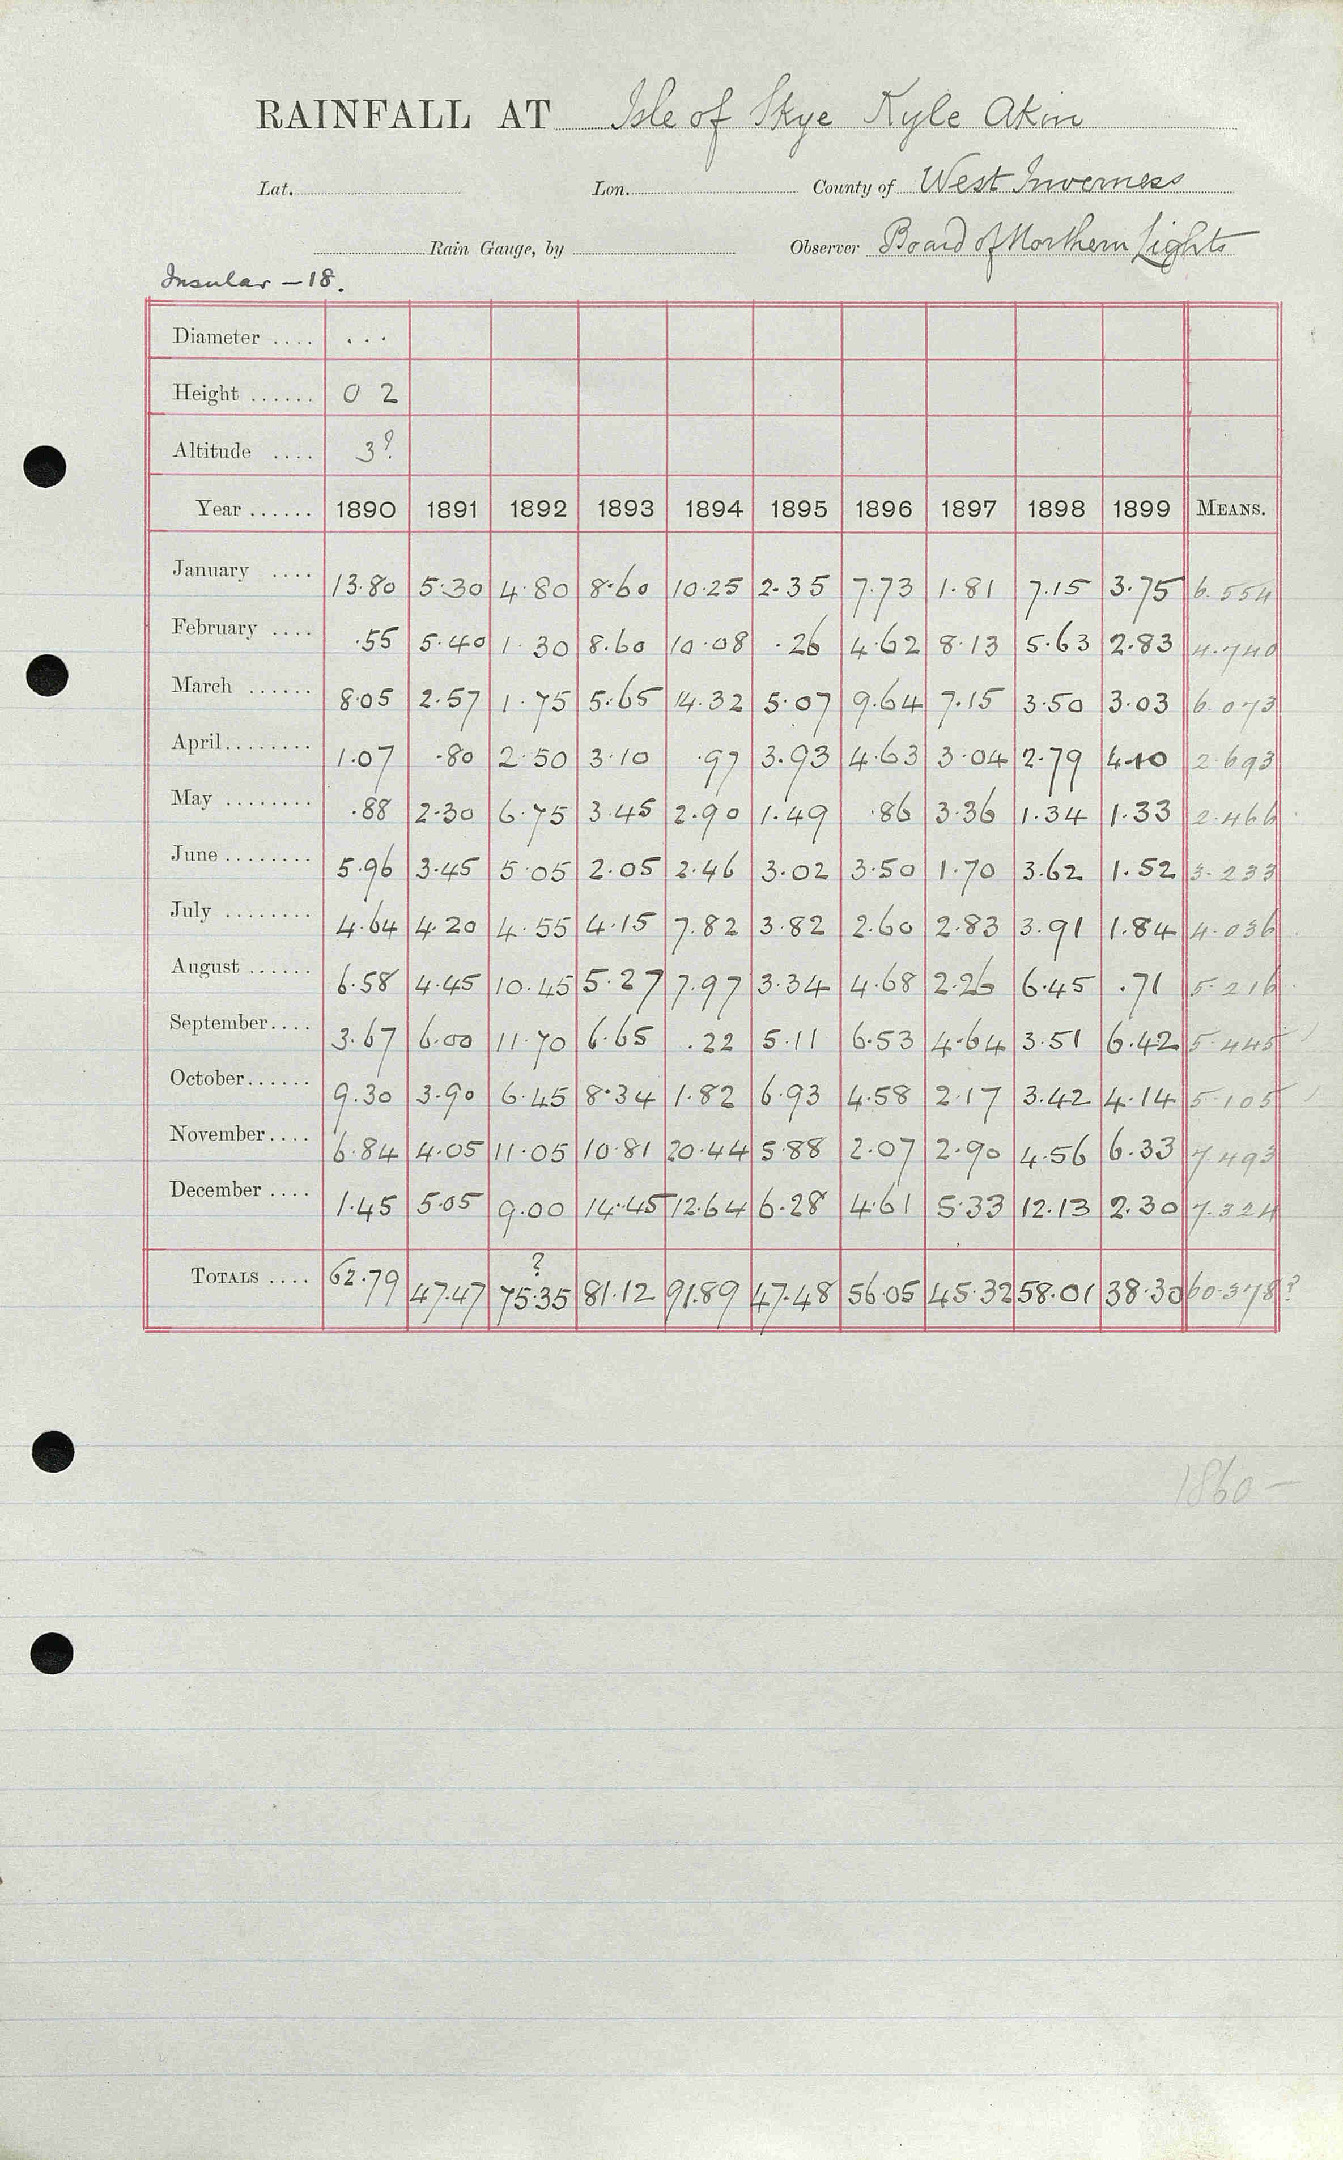 RAINFALL AT Isle of Skye Kyle Akin
Lat. Lon. County of West Inverness
Rain Gauge, by Observer Board of Northern Lights
Insular - 18.
Diameter .... ...
Height ...... 0 2
Altitude .... 3?
Year ...... 1890 1891 1892 1893 1894 1895 1896 1897 1898 1899 MEANS.
January .... 13.80 5.30 4.80 8.60 10.25 2.35 7.73 1.81 7.15 3.75 6.554
February .... .55 5.40 1.30 8.60 10.08 .26 4.62 8.13 5.63 2.83 4.740
March ...... 8.05 2.57 1.75 5.65 14.32 5.07 9.64 7.15 3.50 3.03 6.073
April ........ 1.07 .80 2.50 3.10 .97 3.93 4.63 3.04 2.79 4.10 2.693
May ........ .88 2.30 6.75 3.45 2.90 1.49 .86 3.36 1.34 1.33 2.466
June ........ 5.96 3.45 5.05 2.05 2.46 3.02 3.50 1.70 3.62 1.52 3.233
July ........ 4.64 4.20 4.55 4.15 7.82 3.82 2.60 2.83 3.91 1.84 4.036
August ...... 6.58 4.45 10.45 5.27 7.97 3.34 4.68 2.26 6.45 .71 5.216
September .... 3.67 6.00 11.70 6.65 .22 5.11 6.53 4.64 3.51 6.42 5.445
October ...... 9.30 3.90 6.45 8.34 1.82 6.93 4.58 2.17 3.42 4.14 5.105
November .... 6.84 4.05 11.05 10.81 20.44 5.88 2.07 2.90 4.56 6.33 7.493
December .... 1.45 5.05 9.00 14.45 12.64 6.28 4.61 5.33 12.13 2.30 7.324
?
TOTALS .... 62.79 47.47 75.35 81.12 91.89 47.48 56.05 45.32 58.01 38.30 60.378?
1860 -